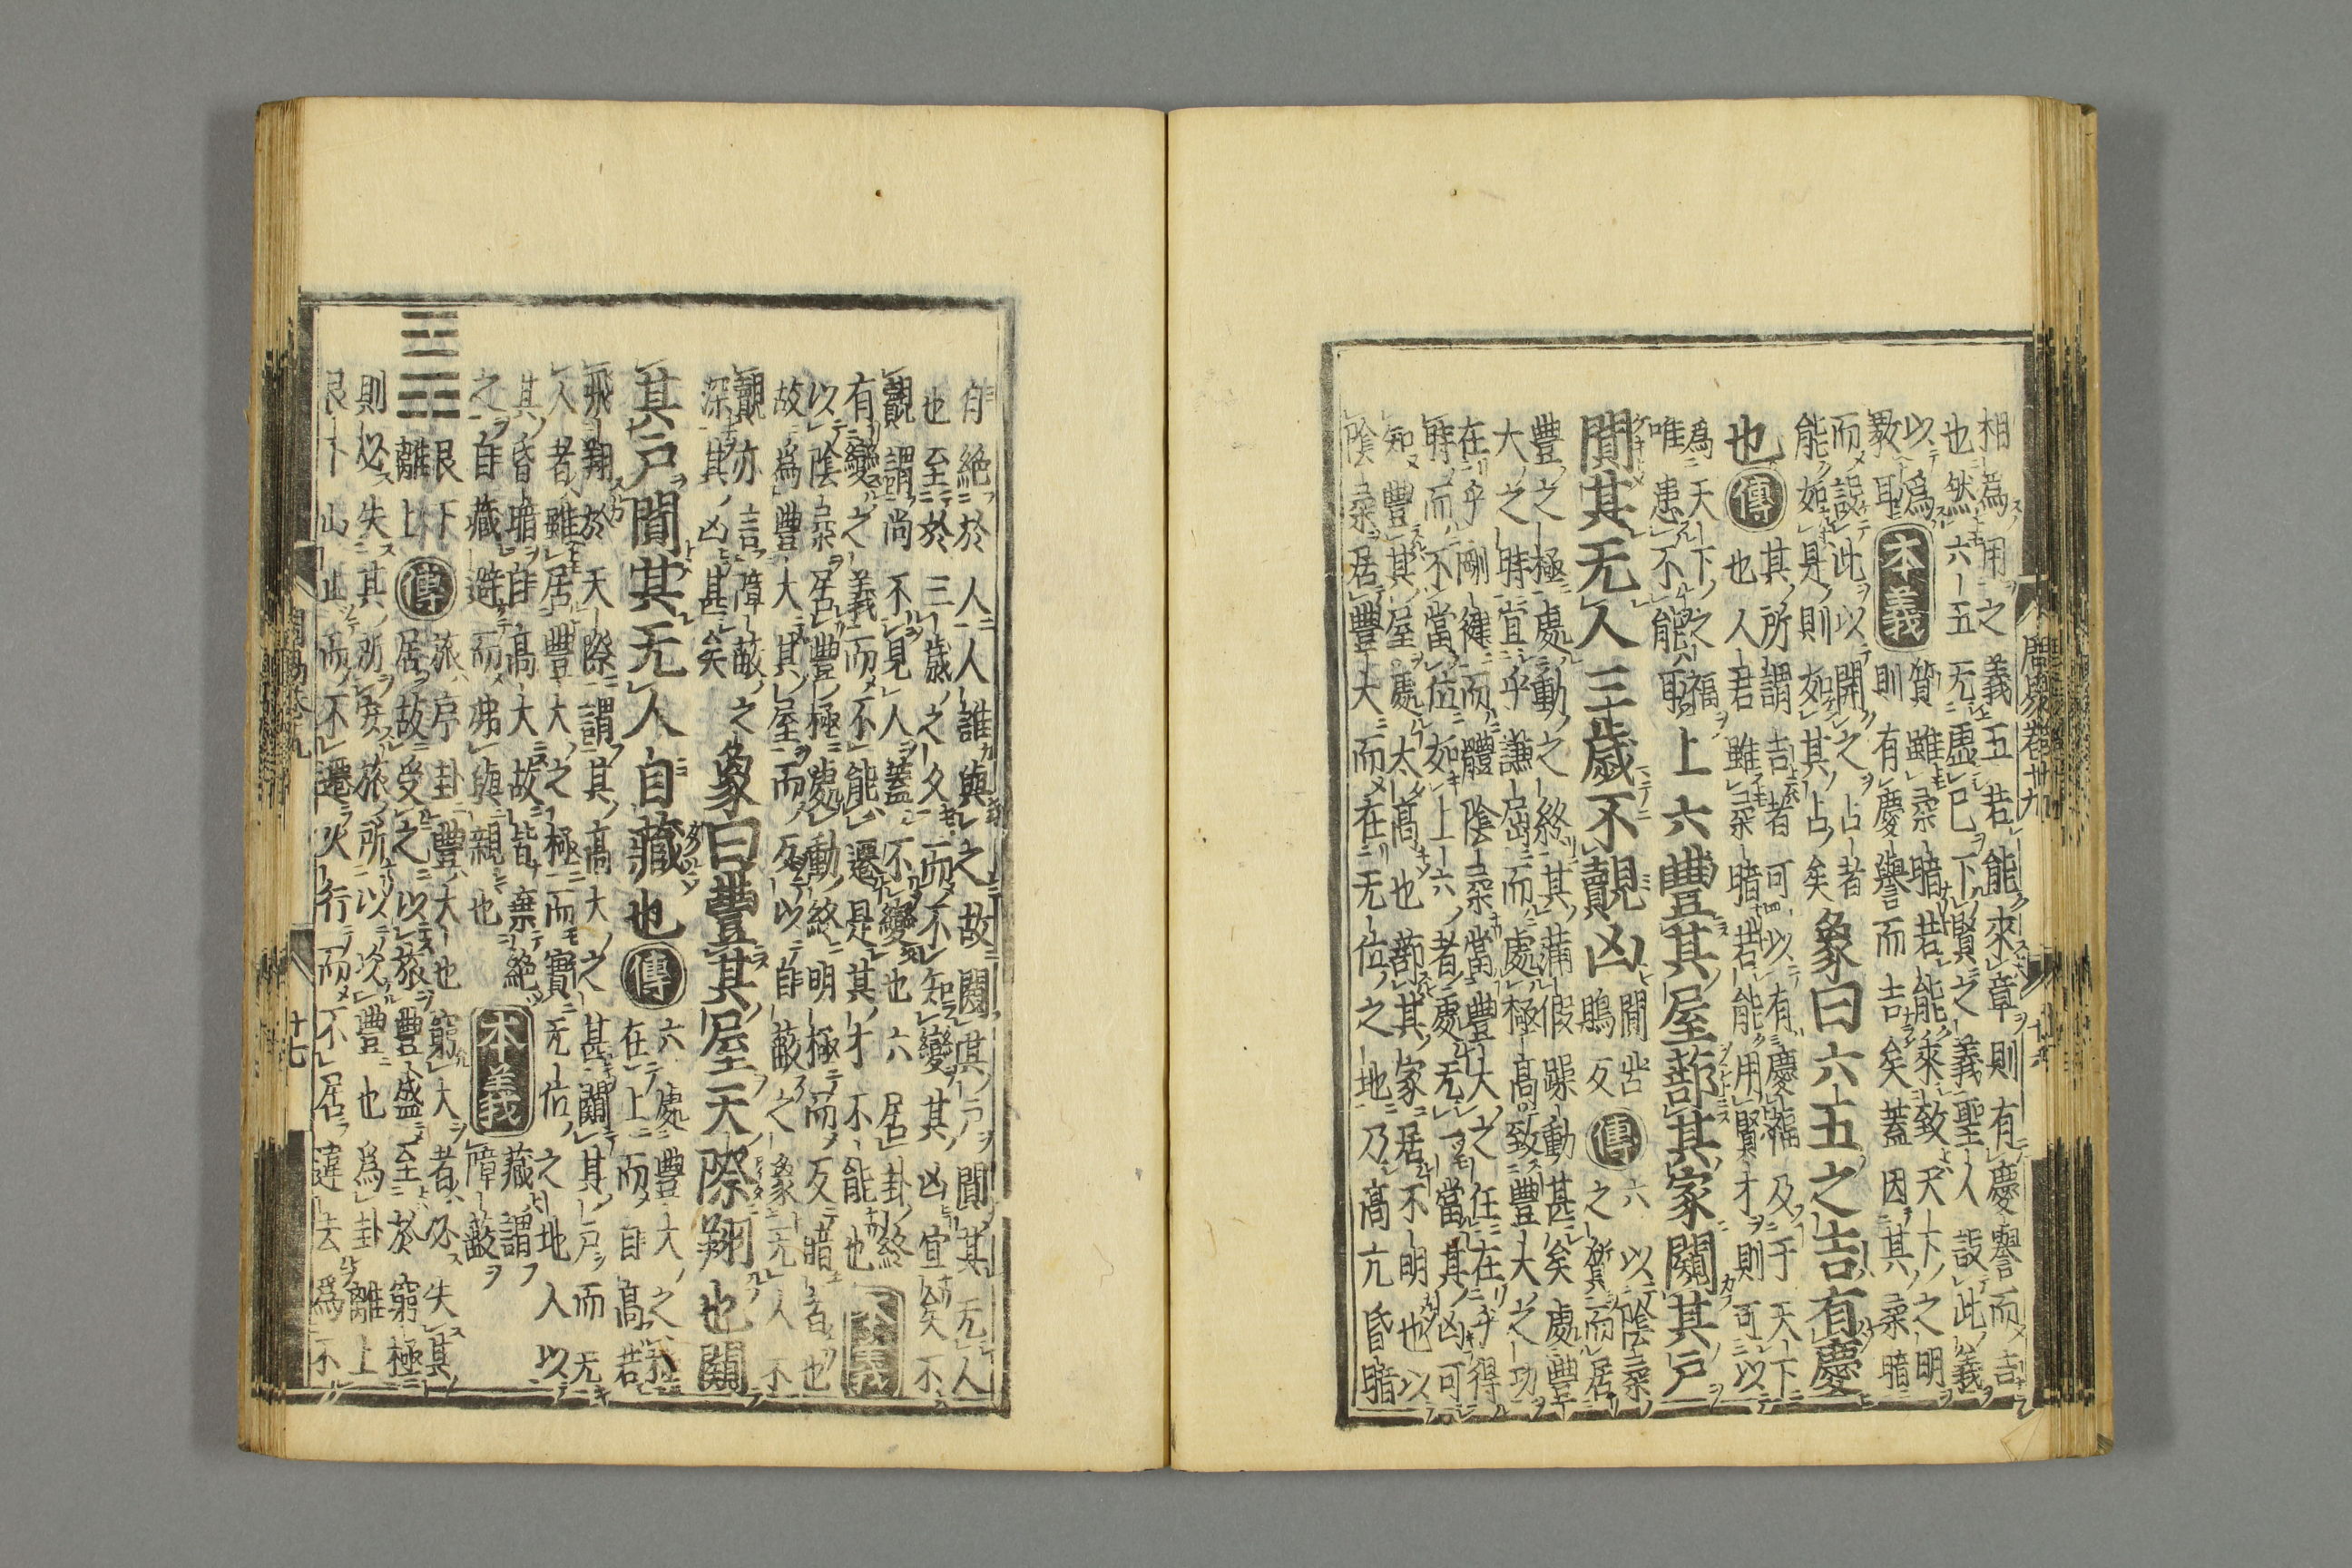 相爲用之義五若能來章則有慶譽而吉
也然六五无虛已下賢之義聖人設此義
以爲
教耳
本義
質雖柔暗若能來致天下之明
則有慶譽而吉矣蓋因其柔暗
而設此以開之占者
能如是則如其占矣
象曰六五之吉有慶
也
傳
其所謂吉者可以有慶福及于天下
也人君雖柔暗若能用賢才則可以
爲天下之福
唯患不能耳
上六豐其屋蔀其家闚其戶
闃其无人三歲不覿凶
闃苦
鵙反
傳
六以陰柔
之質而居
豐之極處動之終其滿假躁動甚矣處豐
大之時宜乎謙屈而處極高致豐大之功
在乎剛健而體陰柔當豐大之任在乎得
時而不當位如上六者處无一當其凶可
知豐其屋處太高也蔀其家居不明也以
陰柔居豐大而在无位之地乃高亢昏暗
自絕於人人誰與之故闚其戶闃其无人
也至於三歲之久而不知變其凶宜矣不
覿謂尚不見人蓋不變也六居卦終
有變之義而不能遷是其才不能也
本義
以陰柔居豐極處動終明極而反暗者也
故爲豐大其屋而反以自蔽之象无人不
覿亦言障蔽之
深其凶甚矣
象曰豐其屋天際翔也闚
其戶闃其无人自藏也
傳
六處豐大之極
在上而自高若
飛翔於天際謂其高大之甚闚其戶而无
人者雖居豐大之極而實无位之地人以
其昏暗自高大故皆棄絕
之自藏避而弗與親也
本義
藏謂
障蔽
艮下
離上
傳
旅序卦豐大也窮大者必失其
居故受之以旅豐盛至於窮極
則必失其所安旅所以次豐也爲卦離上
艮下山止而不遷火行而不居違去爲不
十七